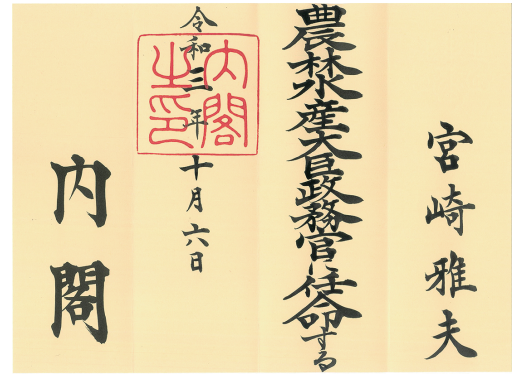 宮崎雅夫
農林水産大臣政務官に任命する
令和三年十月六日
内閣
内閣之印